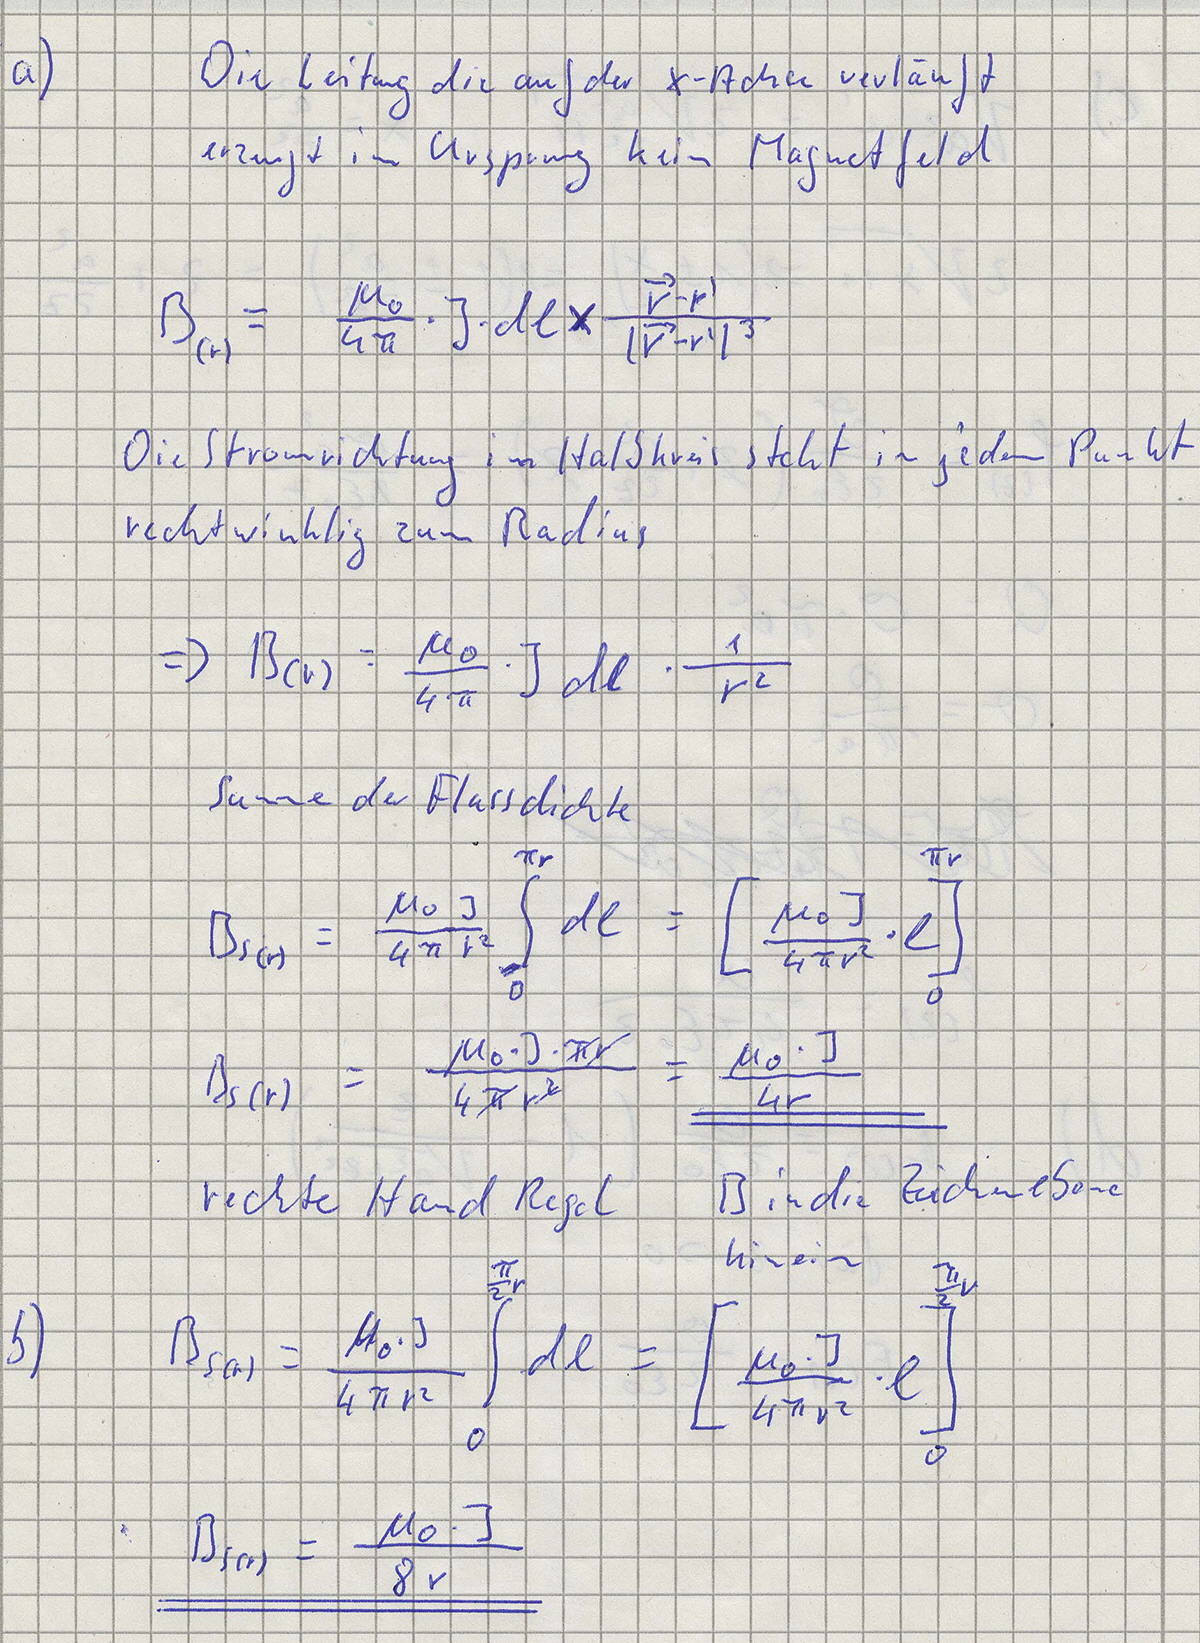 a) Die Leitung die auf der x-Achse verläuft
erzeugt im Ursprung kein Magnetfeld
B(r) = μ₀/4π · J · dl × (r⃗-r')/|r⃗-r'|³
Die Stromrichtung im Halbkreis steht in jedem Punkt
rechtwinklig zum Radius
=> B(r) = μ₀/4π · J dl · 1/r²
Summe der Flussdichte
Bs(r) = μ₀ J/4π r² ∫₀^πr dl = [μ₀ J/4πr² · l]₀^πr
Bs(r) = μ₀ · J · πr/4πr² = μ₀ · J/4r
rechte Hand Regel B in die Zeichenebene
hinein
b) Bs(r) = μ₀ · J/4πr² ∫₀^(π/2 r) dl = [μ₀ · J/4πr² · l]₀^(π/2 r)
Bs(r) = μ₀ · J/8r